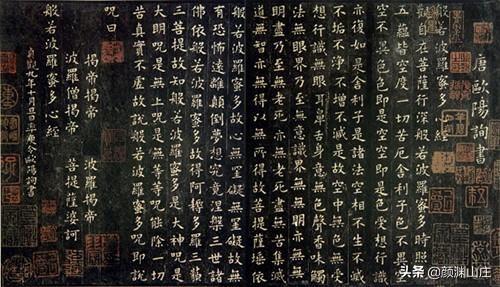 唐歐陽詢書
般若波羅蜜多心經
觀自在菩薩行深般若波羅蜜多時照見
五蘊皆空度一切苦厄舍利子色不異空
空不異色色即是空空即是色受想行識
亦復如是舍利子是諸法空相不生不滅
不垢不淨不增不減是故空中無色無受
想行識無眼耳鼻舌身意無色聲香味觸
法無眼界乃至無意識界無無明亦無無
明盡乃至無老死亦無老死盡無苦集滅
道無智亦無得以無所得故菩提薩埵依
般若波羅蜜多故心無罣礙無罣礙故無
有恐怖遠離顛倒夢想究竟涅槃三世諸
佛依般若波羅蜜多故得阿耨多羅三藐
三菩提故知般若波羅蜜多是大神咒是
大明咒是無上咒是無等等咒能除一切
苦真實不虛故說般若波羅蜜多咒即說
咒曰
揭帝揭帝 波羅揭帝
波羅僧揭帝 菩提薩婆訶
般若波羅蜜多心經
貞觀九年十月旦日率更令歐陽詢書
头条 @颜渊山庄